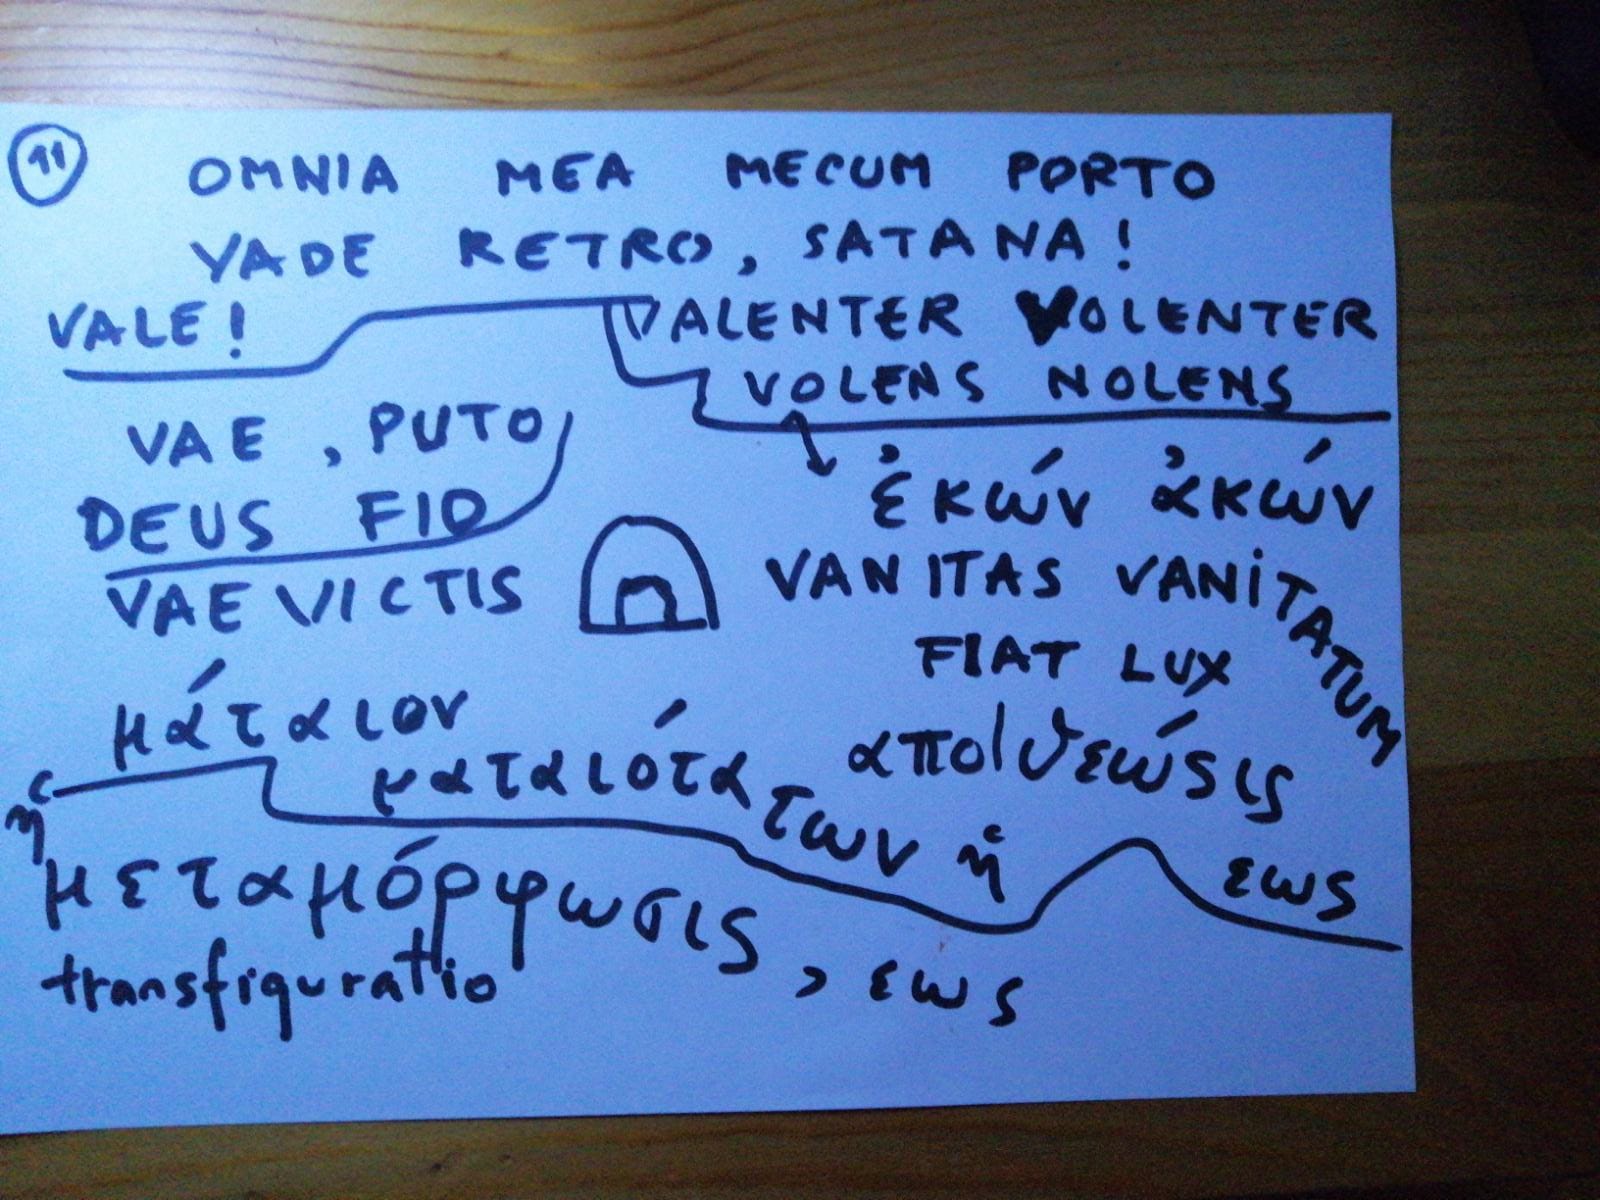 11
OMNIA MEA MECUM PORTO
VADE RETRO, SATANA!
VALE!
VALENTER VOLENTER
VOLENS NOLENS
VAE, PUTO
DEUS FIO
ἐκών ἀκών
VAE VICTIS
VANITAS VANITATUM
FIAT LUX
μάταιον
ματαιότατων
ἡ ἀπο|θεώσις, εως
ἡ μεταμόρφωσις, εως
transfiguratio